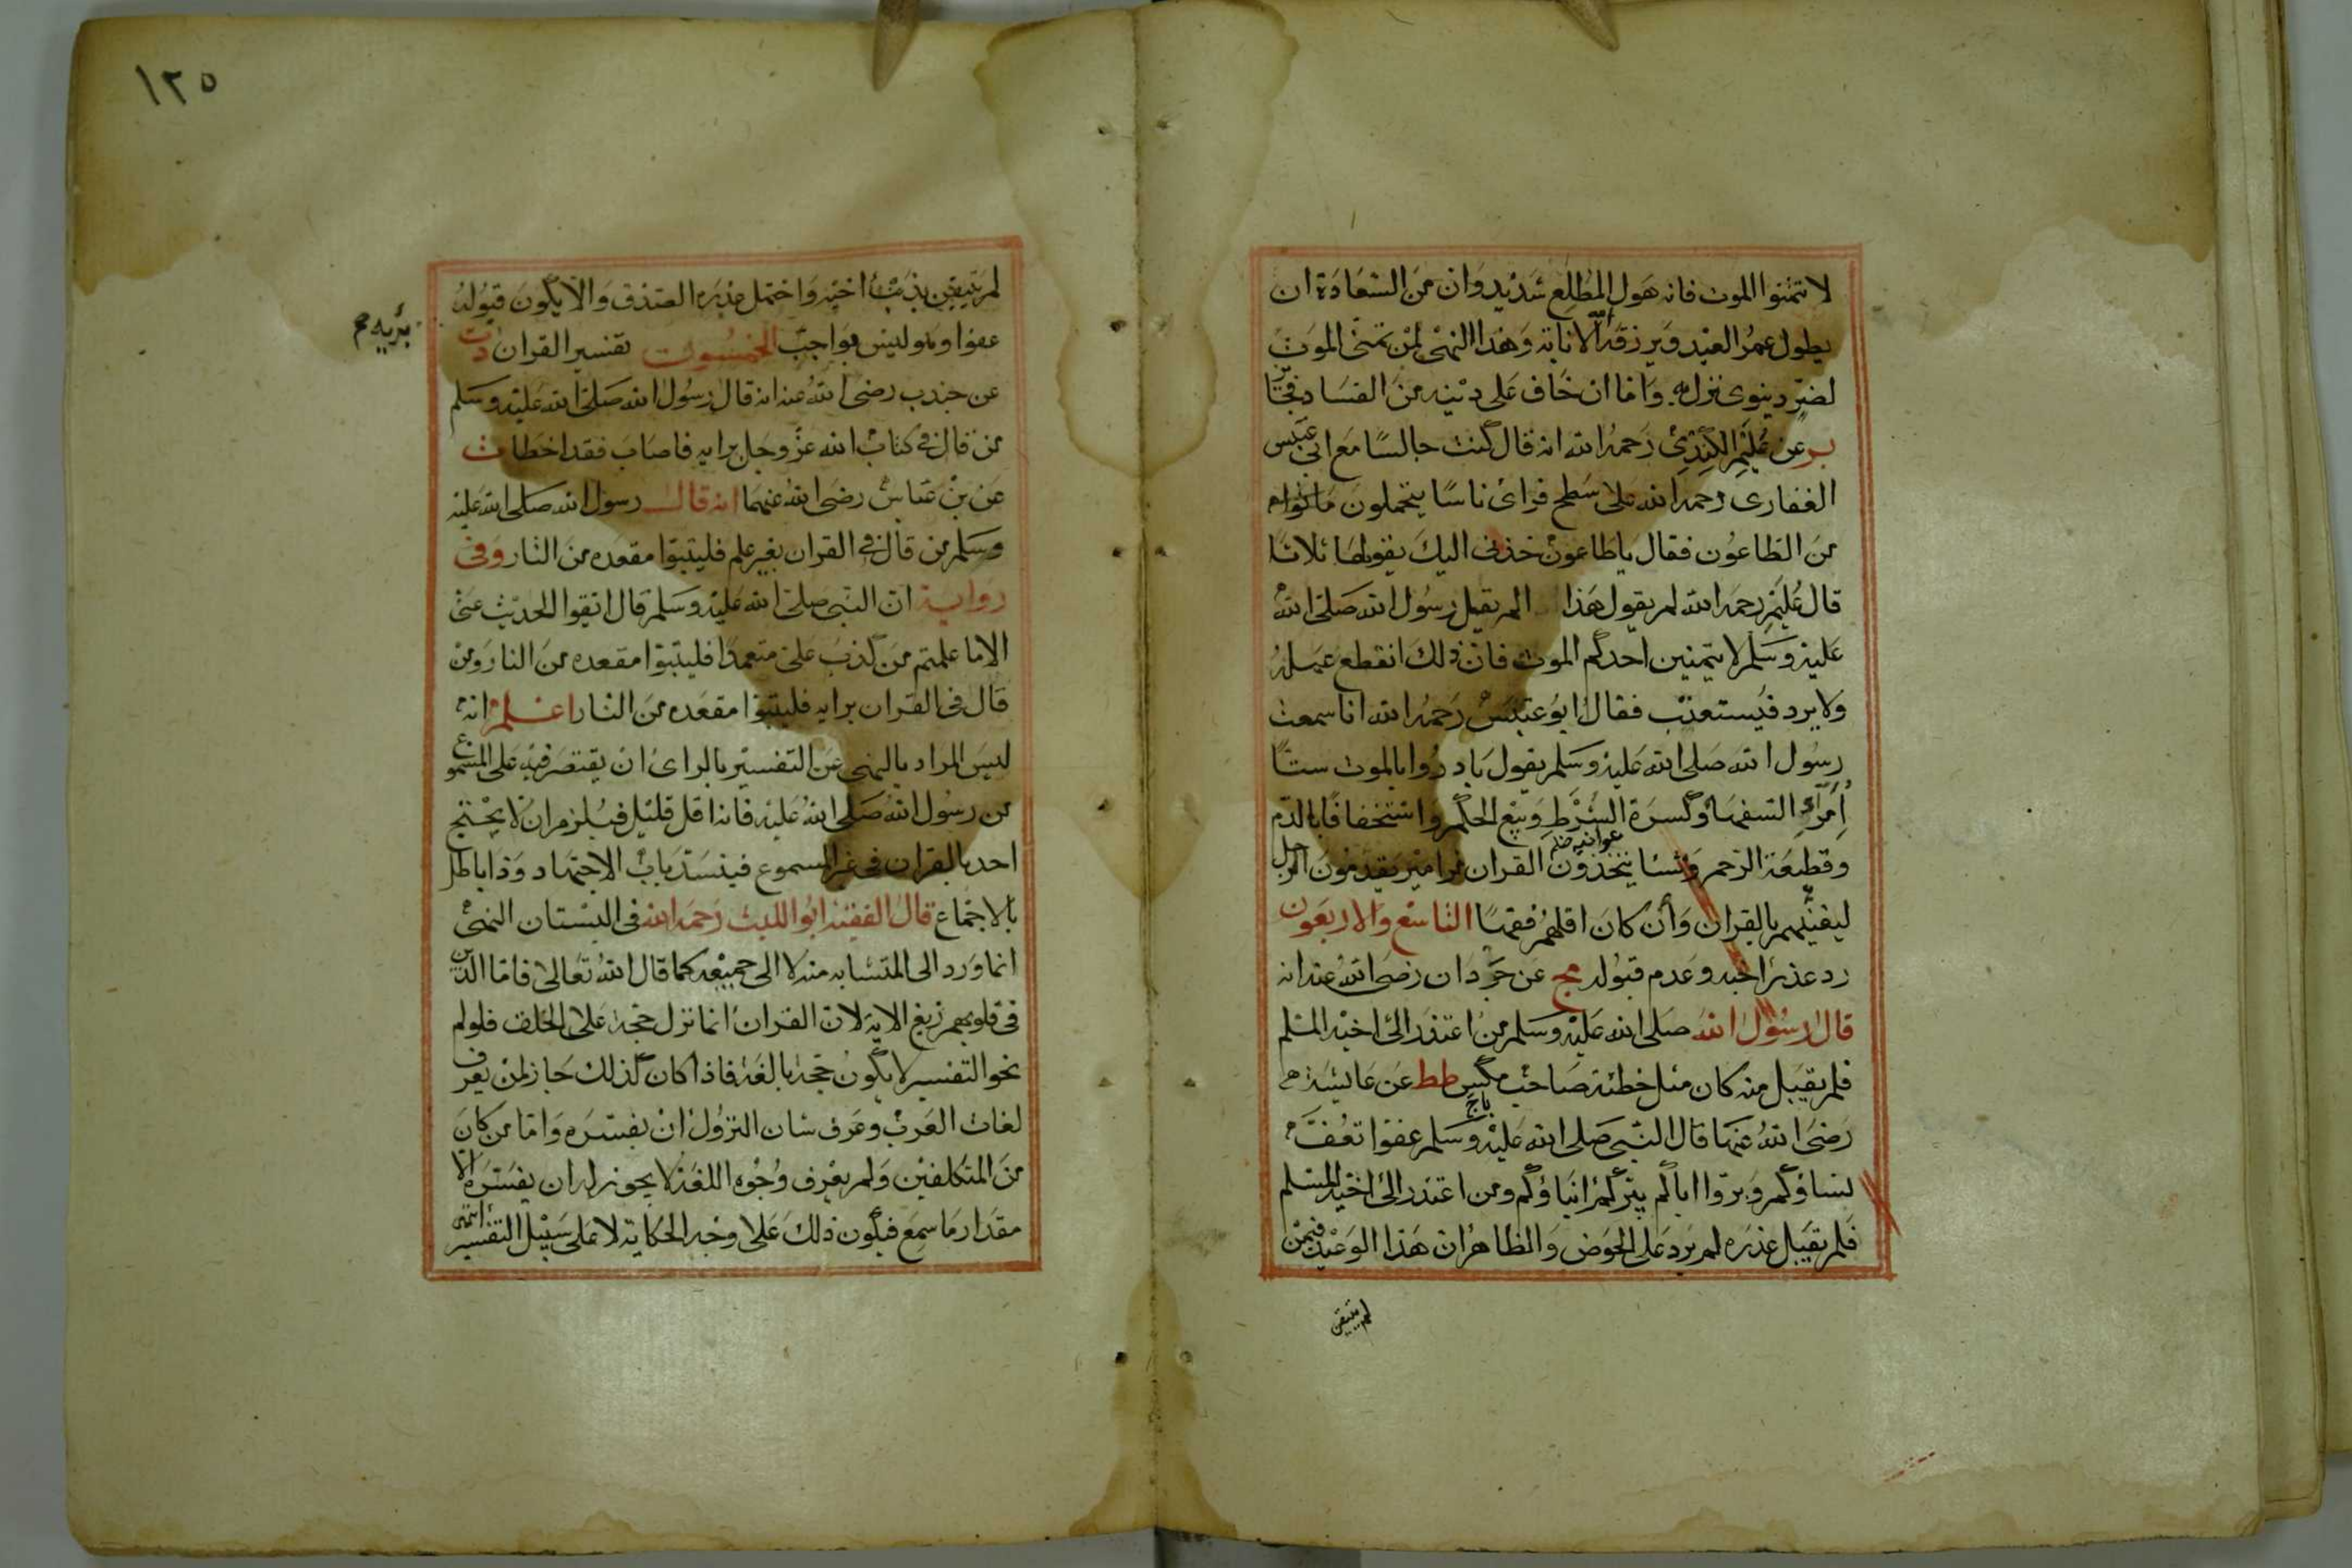 لا تتمنوا الموت فانه هول المطلع شديد وان من السعادة ان
يطول عمر العبد ويرزقه الله الانابة وهذا النهى لمن تمنى الموت
لضر دينوى نزل به واما ان خاف على دينه من الفساد فجائز
بر عن عليم الكندى رحمه الله انه قال كنت جالسا مع ابى عبس
الغفارى رحمه الله على سطح فراى ناسا يتحملون
من الطاعون فقال ياطاعون خذنى اليك يقولها ثلاثا
قال عليم رحمه الله لم يقول هذا الم يقل رسول الله صلى الله
عليه وسلم لا يتمنين احدكم الموت فان ذلك انقطع عمله
ولا يرد فيستعتب فقال ابو عبس رحمه الله انا سمعت
رسول الله صلى الله عليه وسلم يقول بادروا بالموت ستا
امرة السفهاء وكسرة الشرط وبيع الحكم واستخفافا بالدم
وقطيعة الرحم ونشا يتخذون القران مزامير يقدمون الرجل
ليغنيهم بالقران وان كان اقلهم فقها التاسع والاربعون
رد عذر اخيه وعدم قبوله مج عن جودان رضى الله عنه انه
قال رسول الله صلى الله عليه وسلم من اعتذر الى اخيه المسلم
فلم يقبل منه كان مثل خطئة صاحب مكس طط عن عايشة
رضى الله عنها قال النبى صلى الله عليه وسلم عفوا تعف
نساؤكم وبروا اباكم يبركم ابناؤكم ومن اعتذر الى اخيه المسلم
فلم يقبل عذره لم يرد على الحوض والظاهر ان هذا الوعيد فيمن
لم يتيقن
١٢٥
لم يتيقن بذب اخيه واحتمل عذره الصدق والا يكون قبوله
عفوا وهو ليس بواجب الخمسون تفسير القران دت
برايه
عن جندب رضى الله عنه انه قال رسول الله صلى الله عليه وسلم
من قال فى كتاب الله عز وجل برايه فاصاب فقد اخطا ت
عن بن عباس رضى الله عنهما انه قال رسول الله صلى الله عليه
وسلم من قال فى القران بغير علم فليتبوا مقعده من النار وفى
رواية ان النبى صلى الله عليه وسلم قال اتقوا الحديث عنى
الا ما علمتم من كذب على متعمدا فليتبوا مقعده من النار ومن
قال فى القران برايه فليتبوا مقعده من النار اعلم انه
ليس المراد بالنهى عن التفسير بالراى ان يقتصر فيه على المسموع
من رسول الله صلى الله عليه فانه اقل قليل فيلزم ان لا يحتج
احد بالقران فى غير المسموع فينسد باب الاجتهاد وذا باطل
بالاجماع قال الفقيه ابو الليث رحمه الله فى البستان النهى
انما ورد الى المتشابه منه لا الى جميعه كما قال الله تعالى فاما الذين
فى قلوبهم زيغ الاية لان القران انما نزل حجة على الخلق فلو لم
يجز التفسير لا يكون حجة بالغة فاذا كان كذلك جاز لمن يعرف
لغات العرب وعرف شان النزول ان يفسره واما من كان
من المتكلفين ولم يعرف وجوه اللغة لا يجوز له ان يفسره الا
مقدار ما سمع فيكون ذلك على وجه الحكاية لا على سبيل التفسير انتهى